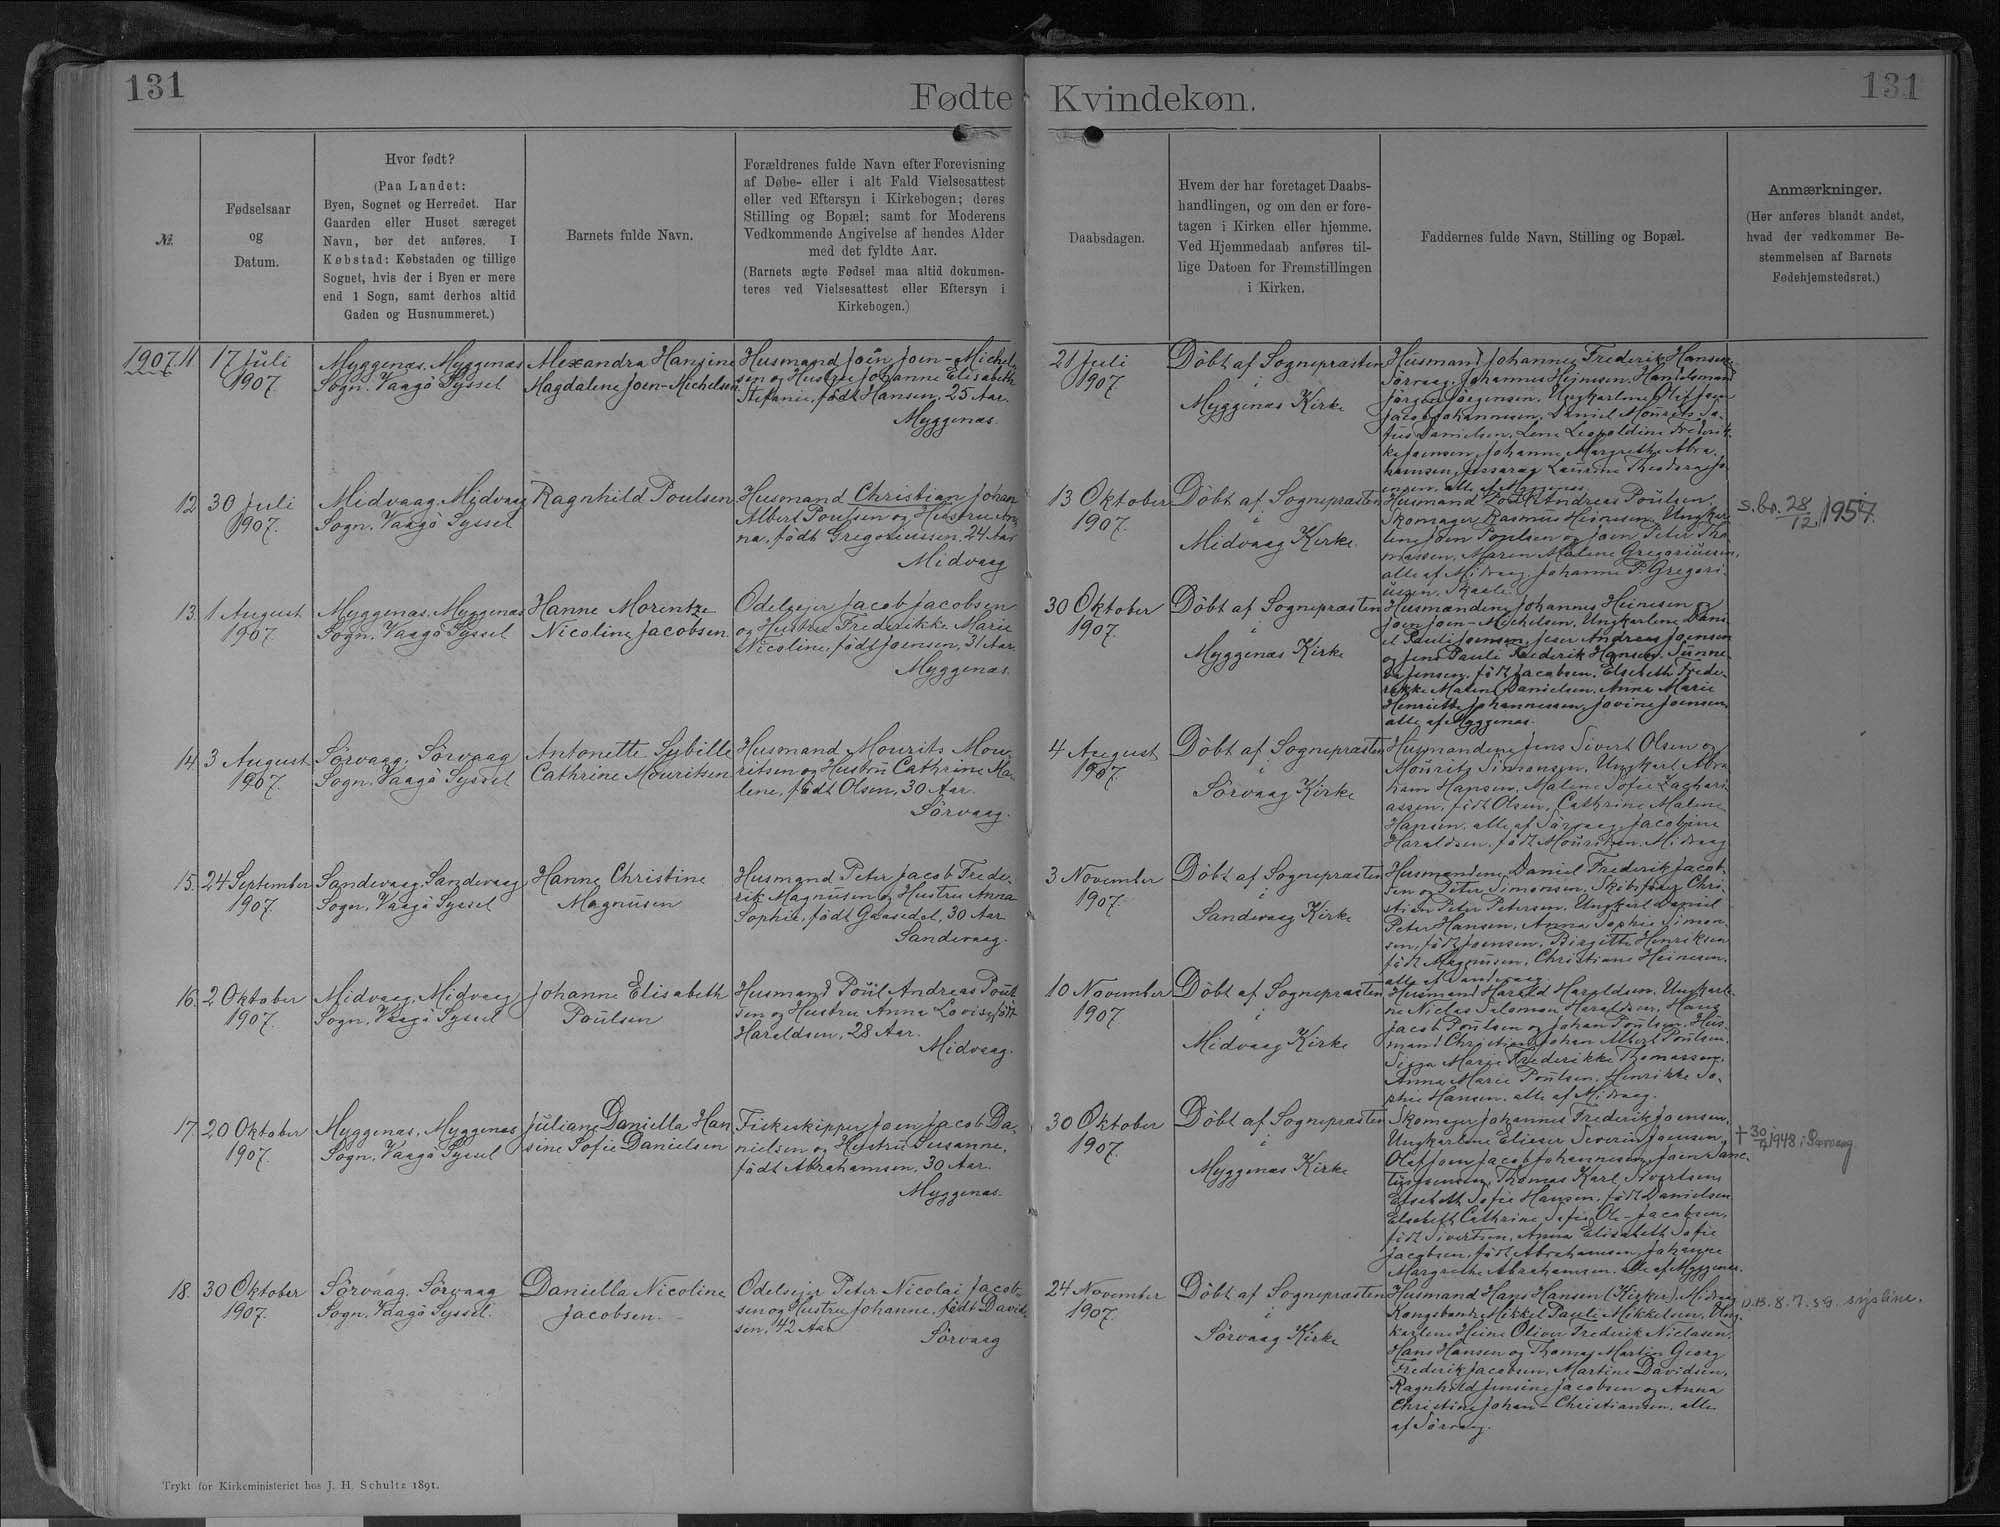 131
Fødte Kvindekøn.
131
№.
Fødselsaar
og
Datum.
Hvor født?
(Paa Landet:
Byen, Sognet og Herredet. Har
Gaarden eller Huset særeget
Navn, bør det anføres. I
Købstad: Købstaden og tillige
Sognet, hvis der i Byen er mere
end 1 Sogn, samt derhos altid
Gaden og Husnummeret.)
Barnets fulde Navn.
Forældrenes fulde Navn efter Forevisning
af Døbe- eller i alt Fald Vielsesattest
eller ved Eftersyn i Kirkebogen; deres
Stilling og Bopæl; samt for Moderens
Vedkommende Angivelse af hendes Alder
med det fyldte Aar.
(Barnets ægte Fødsel maa altid dokumen-
teres ved Vielsesattest eller Eftersyn i
Kirkebogen.)
Daabsdagen.
Hvem der har foretaget Daabs-
handlingen, og om den er fore-
tagen i Kirken eller hjemme.
Ved Hjemmedaab anføres til-
lige Datoen for Fremstillingen
i Kirken.
Faddernes fulde Navn, Stilling og Bopæl.
Anmærkninger.
(Her anføres blandt andet,
hvad der vedkommer Be-
stemmelsen af Barnets
Fødehjemstedsret.)
1907. 11
17 Juli
1907.
Myggenæs, Myggenæs
Sogn, Vaagö Syssel
Alexandra Hansine
Magdalene Joen-Michelsen
Husmand Joen Joen-Michel-
sen og Hustru Johanne Elisabeth
Stefanie, født Hansen, 25 Aar.
Myggenæs.
21 Juli
1907.
Döbt af Sognepræsten
i
Myggenæs Kirke
Husmand Johannes Frederik Hansen
Sörvaag, Johannes Heinesen, Handelsmand
Jörgen Jörgensen, Ungkarlene Olif Joen
Jacob Johannesen, Daniel Mourits Ja-
Danielsen, Lena Leopoldine Frederik-
ke Joensen, Johanne Margrethe Abra-
hamsen, Laurine Theodora Jo-
ensen, alle af Myggenæs.
12
30 Juli
1907.
Midvaag, Midvaag
Sogn, Vaagö Syssel
Ragnhild Poulsen
Husmand Christian Johan
Albert Poulsen og Hustru An-
na, født Gregoriussen, 24 Aar
Midvaag
13 Oktober
1907.
Döbt af Sognepræsten
i
Midvaag Kirke.
Husmand Poul Andreas Poulsen,
Skomager Rasmus Heinesen, Ungkar-
lene Joen Poulsen og Joen Peter Tho-
massen, Maren Malene Gregoriussen,
alle af Midvaag, Johanne P. Gregori-
ussen, Skaale.
s.br. 28/12. 1957.
13.
1 August
1907.
Myggenæs, Myggenæs
Sogn, Vaagö Syssel
Hanne Morentze
Nicoline Jacobsen
Odelsejer Jacob Jacobsen
og Hustru Frederikke Marie
Nicoline, født Joensen, 31 Aar.
Myggenæs.
30 Oktober
1907.
Döbt af Sognepræsten
i
Myggenæs Kirke
Husmændene Johannes Heinesen og
Joen Joen-Michelsen, Ungkarlene Dani-
el Pauli Joensen, Andreas Joensen
og Jens Pauli Frederik Hansen, Sunne-
va Jensen, født Jacobsen, Elsebeth Frede-
rikke Malene Danielsen, Anna Marie
Henriette Johannessen, Jovine Joensen,
alle af Myggenæs.
14.
3 August
1907.
Sörvaag, Sörvaag
Sogn, Vaagö Syssel
Antonette Sybille
Cathrine Mouritsen
Husmand Mourits Mou-
ritsen og Hustru Cathrine Ma-
lene, født Olsen, 30 Aar.
Sörvaag.
4 August
1907.
Döbt af Sognepræsten
i
Sörvaag Kirke
Husmændene Jens Sivert Olsen og
Mourits Simonsen, Ungkarl Abra-
ham Hansen, Malene Sofie Zachari-
assen, född Olsen, Cathrine Malene
Hansen, alle af Sörvaag, Jacobine
Haraldsen, født Mouritsen, Midvaag
15.
24 September
1907.
Sandevaag, Sandevaag
Sogn, Vaagö Syssel
Hanne Christine
Magnusen
Husmand Peter Jacob Frede-
rik Magnusen og Hustru Anna
Sophie, født Gaasedal, 30 Aar.
Sandevaag.
3 November
1907.
Döbt af Sognepræsten
i
Sandevaag Kirke
Husmændene Daniel Frederik Jacob-
sen og Peter Simonsen, Skibsförer Chri-
stian Peter Petersen, Ungkarl Daniel
Peter Hansen, Anna Sophie Simon-
sen, født Joensen, Birgitte Henriksen
født Magnusen, Christiane Heinesen,
alle af Sandevaag.
16.
2 Oktober
1907.
Midvaag, Midvaag
Sogn, Vaagö Syssel
Johanne Elisabeth
Poulsen
Husmand Poul Andreas Poul-
sen og Hustru Anna Lovise, født
Haraldsen, 28 Aar.
Midvaag.
10 November
1907.
Döbt af Sognepræsten
i
Midvaag Kirke
Husmand Harald Haraldsen, Ungkarle-
ne Niclas Salomon Haraldsen, Hans
Jacob Poulsen og Johan Poulsen, Hus-
mand Christian Johan Albert Poulsen,
Marie Frederikke Thomassen,
Anna Marie Poulsen, Henrikke So-
phie Hansen, alle af Midvaag.
17.
20 Oktober
1907.
Myggenæs, Myggenæs
Sogn, Vaagö Syssel
Juliane Daniella Han
sine Sofie Danielsen
Fiskeskipper Joen Jacob Da-
nielsen og Hustru Susanne,
født Abrahamsen, 30 Aar.
Myggenæs.
30 Oktober
1907.
Döbt af Sognepræsten
i
Myggenæs Kirke
Skomager Johannes Frederik Joensen,
Ungkarlene Elieser Severin Joensen,
Olif Joen Jacob Johannesen, Joen Sanc-
tus Joensen, Thomas Karl Sivertsen,
Elsebeth Sofie Hansen, født Danielsen
Elsebeth Cathrine Sofie Ole-Jacobsen,
født Sivertsen, Anna Elisabeth Sofie
Jacobsen, født Abrahamsen, Johanne
Margrethe Abrahamsen. Alle af Myggenæs.
† 30/4 1948 i Sørvaag.
18.
30 Oktober
1907.
Sörvaag, Sörvaag
Sogn, Vaagö Syssel.
Daniella Nicoline
Jacobsen.
Odelsejer Peter Nicolai Jacob-
sen og Hustru Johanne, født David-
sen, 42 Aar
Sörvaag
24 November
1907.
Döbt af Sognepræsten
i
Sörvaag Kirke
Husmand Hans Hansen (Kirker), Midvaag
Kongsbonde Mikkel Pauli Mikkelsen, Ung-
karlene Heine Oliver Frederik Niclasen,
Hans Hansen og Thomas Martin Georg
Frederik Jacobsen, Martine Davidsen,
Ragnhild Jensine Jacobsen og Anna
Christine Johan-Christiansen, alle
af Sörvaag.
8.7.59. sysline.
Trykt for Kirkeministeriet hos J. H. Schultz 1891.